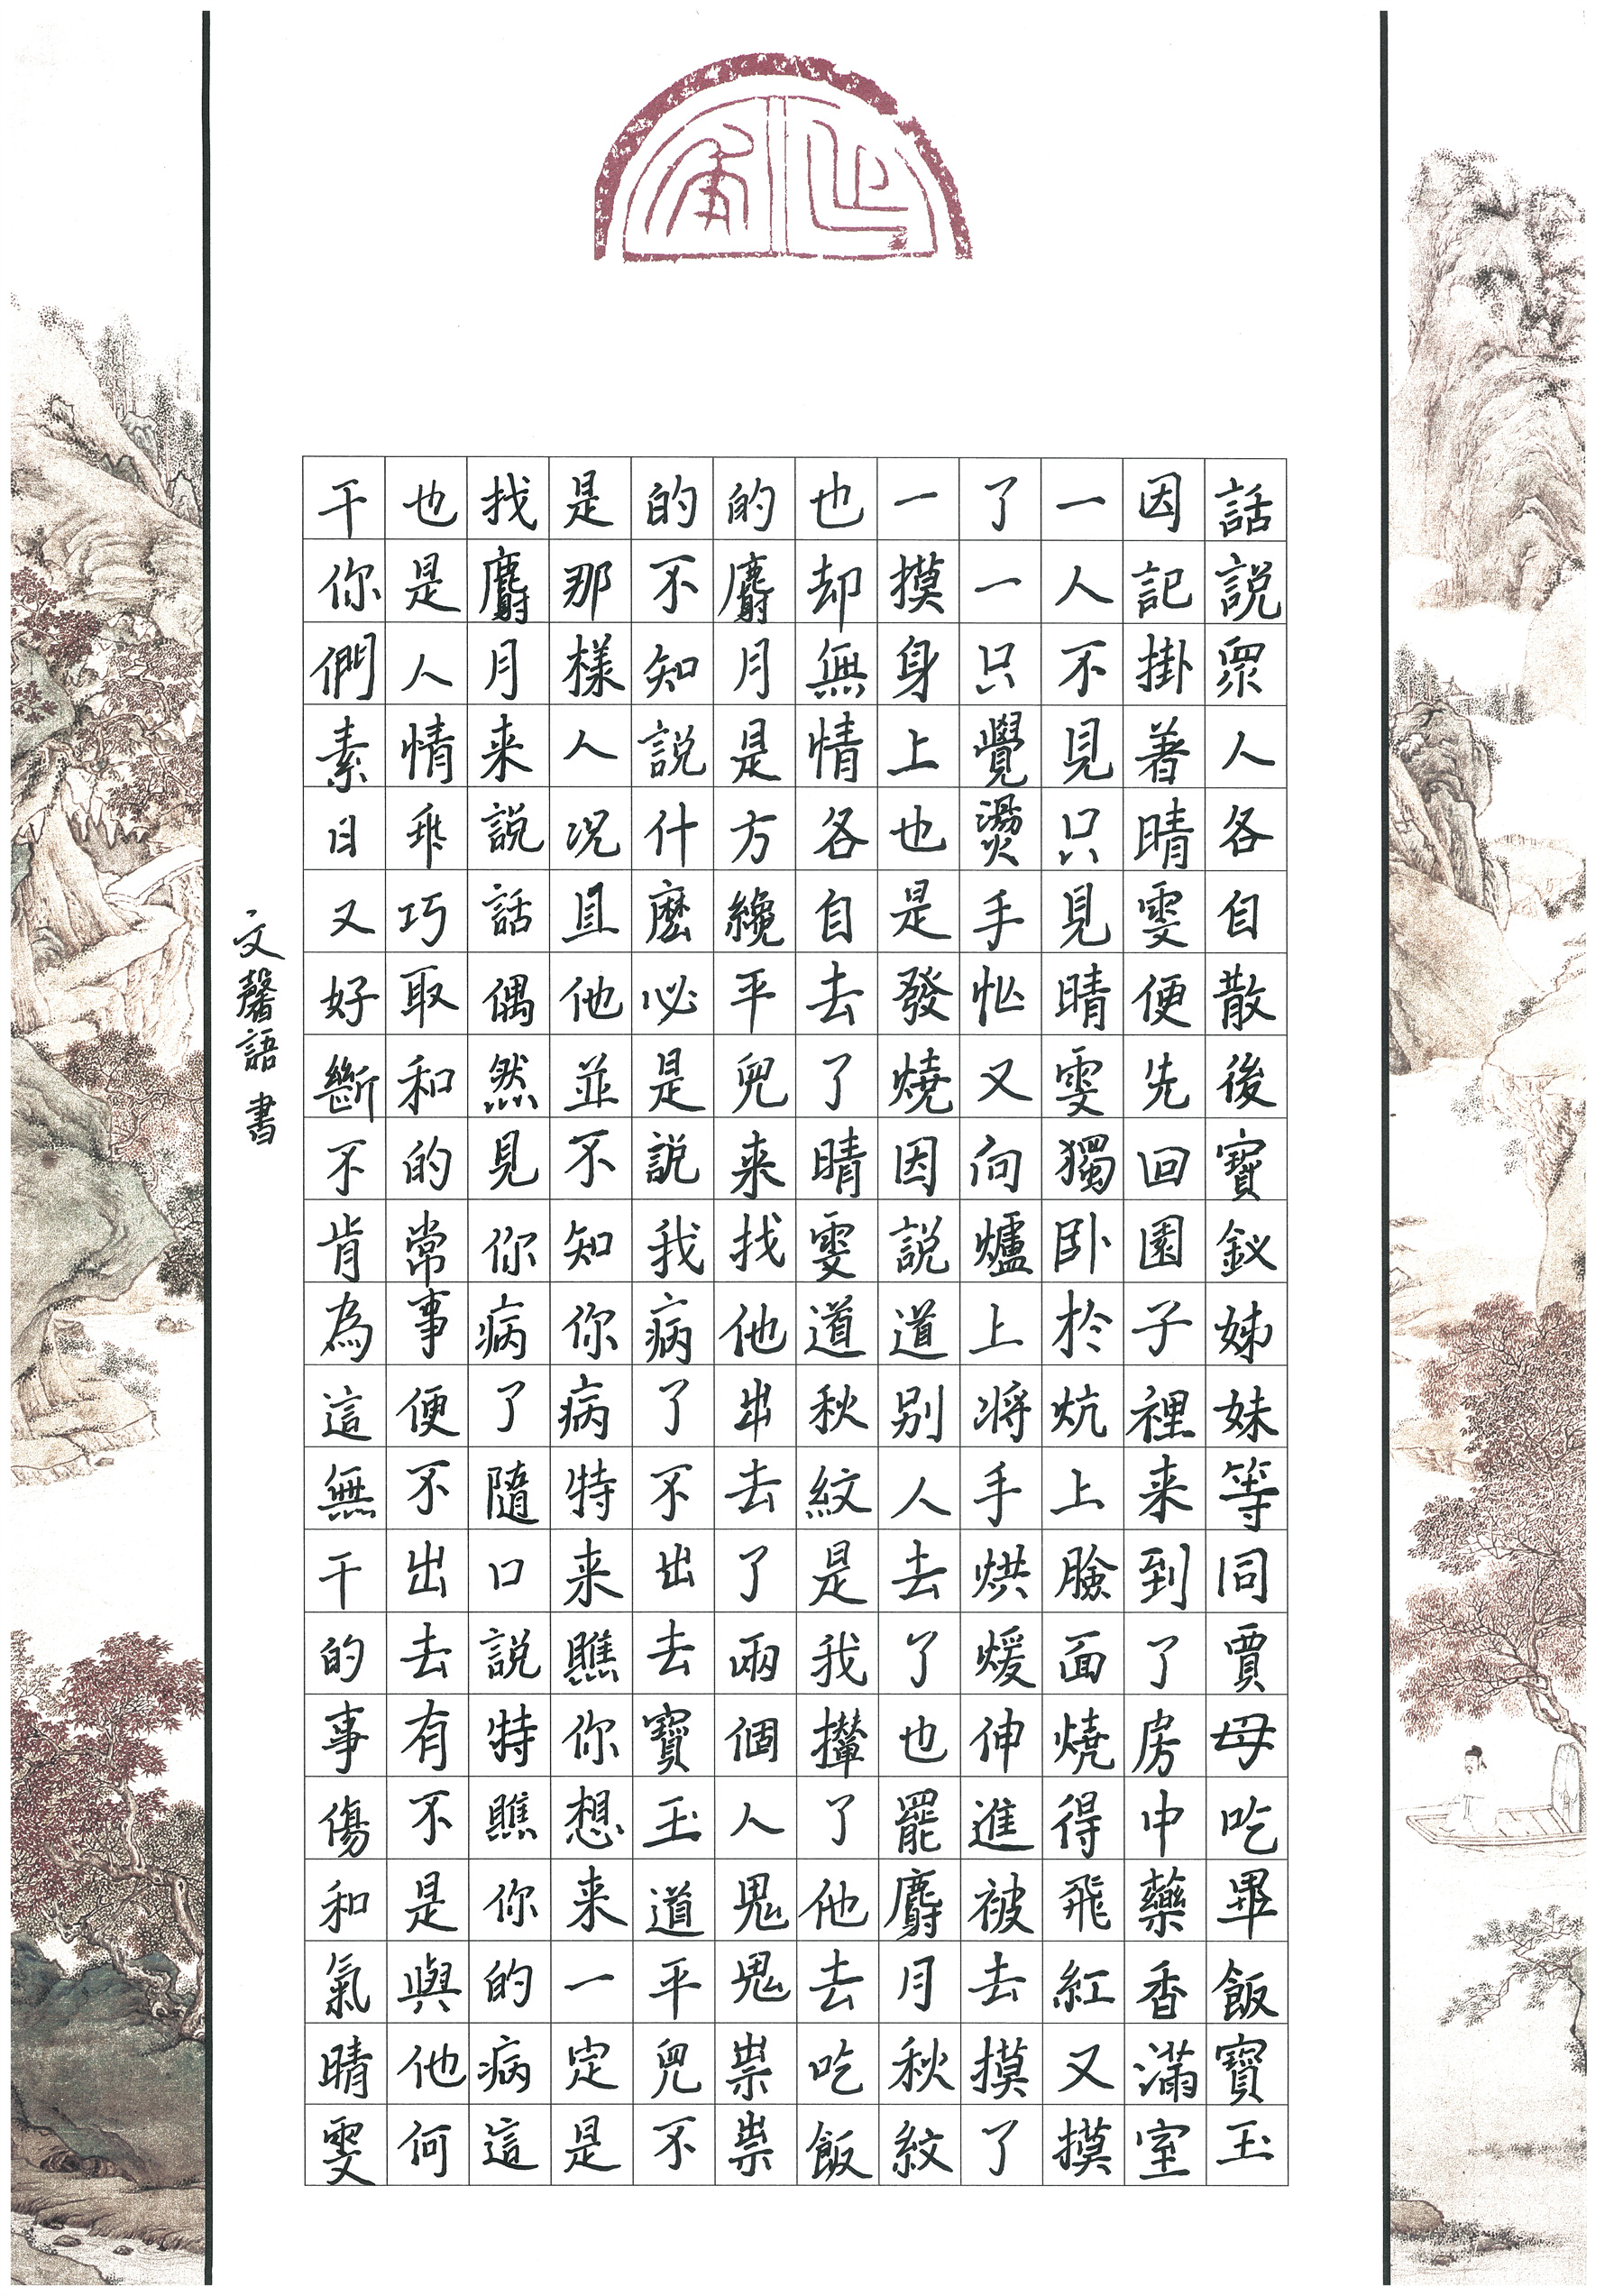 話說眾人各自散後寶釵姊妹等同賈母吃畢飯寶玉
因記掛著晴雯便先回園子裡来到了房中藥香滿室
一人不見只見晴雯獨卧於炕上臉面燒得飛紅又摸
了一只覺燙手忙又向爐上將手烘煖伸進被去摸了
一摸身上也是發燒因說道别人去了也罷麝月秋紋
也却無情各自去了晴雯道秋紋是我攆了他去吃飯
的麝月是方纔平兒来找他出去了兩個人鬼鬼祟祟
的不知說什麼必是說我病了不出去寶玉道平兒不
是那樣人况且他並不知你病特来瞧你想来一定是
找麝月来說話偶然見你病了隨口說特瞧你的病這
也是人情乖巧取和的常事便不出去有不是與他何
干你們素日又好斷不肯為這無干的事傷和氣晴雯
文馨語 書